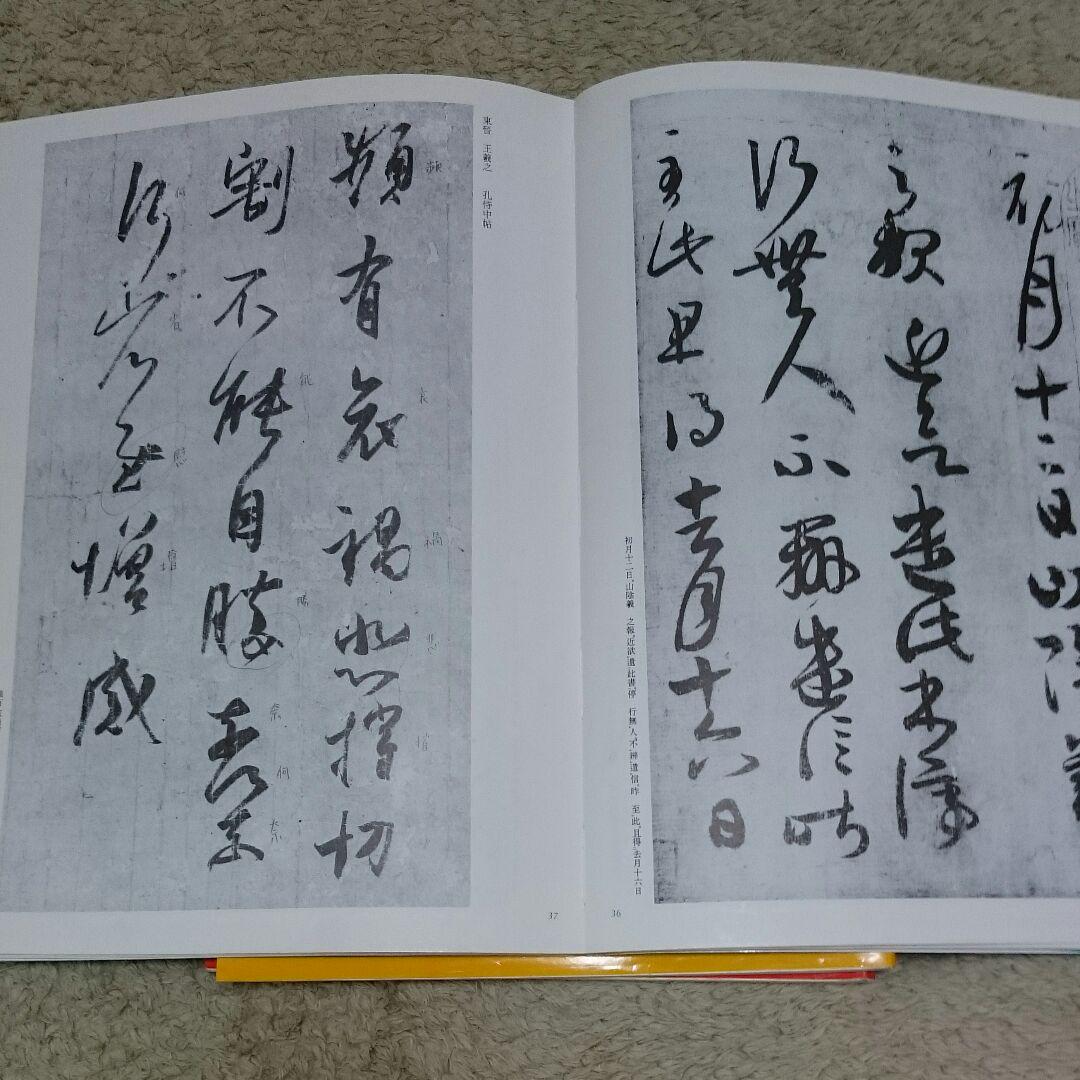 初月十二日山陰羲
之報近欲遣此書停
行無人不辨遣信昨
至此且得去月十六日
初月十二日,山陰羲 之報,近欲遣此書停 行無人,不辨遣信,昨 至此,且得去月十六日
36
東晉 王羲之 孔侍中帖
頻有哀禍悲摧切
割不能自勝奈何奈
何省慰增感
頻
哀
禍
悲
奈
何
何
省
慰
增
37